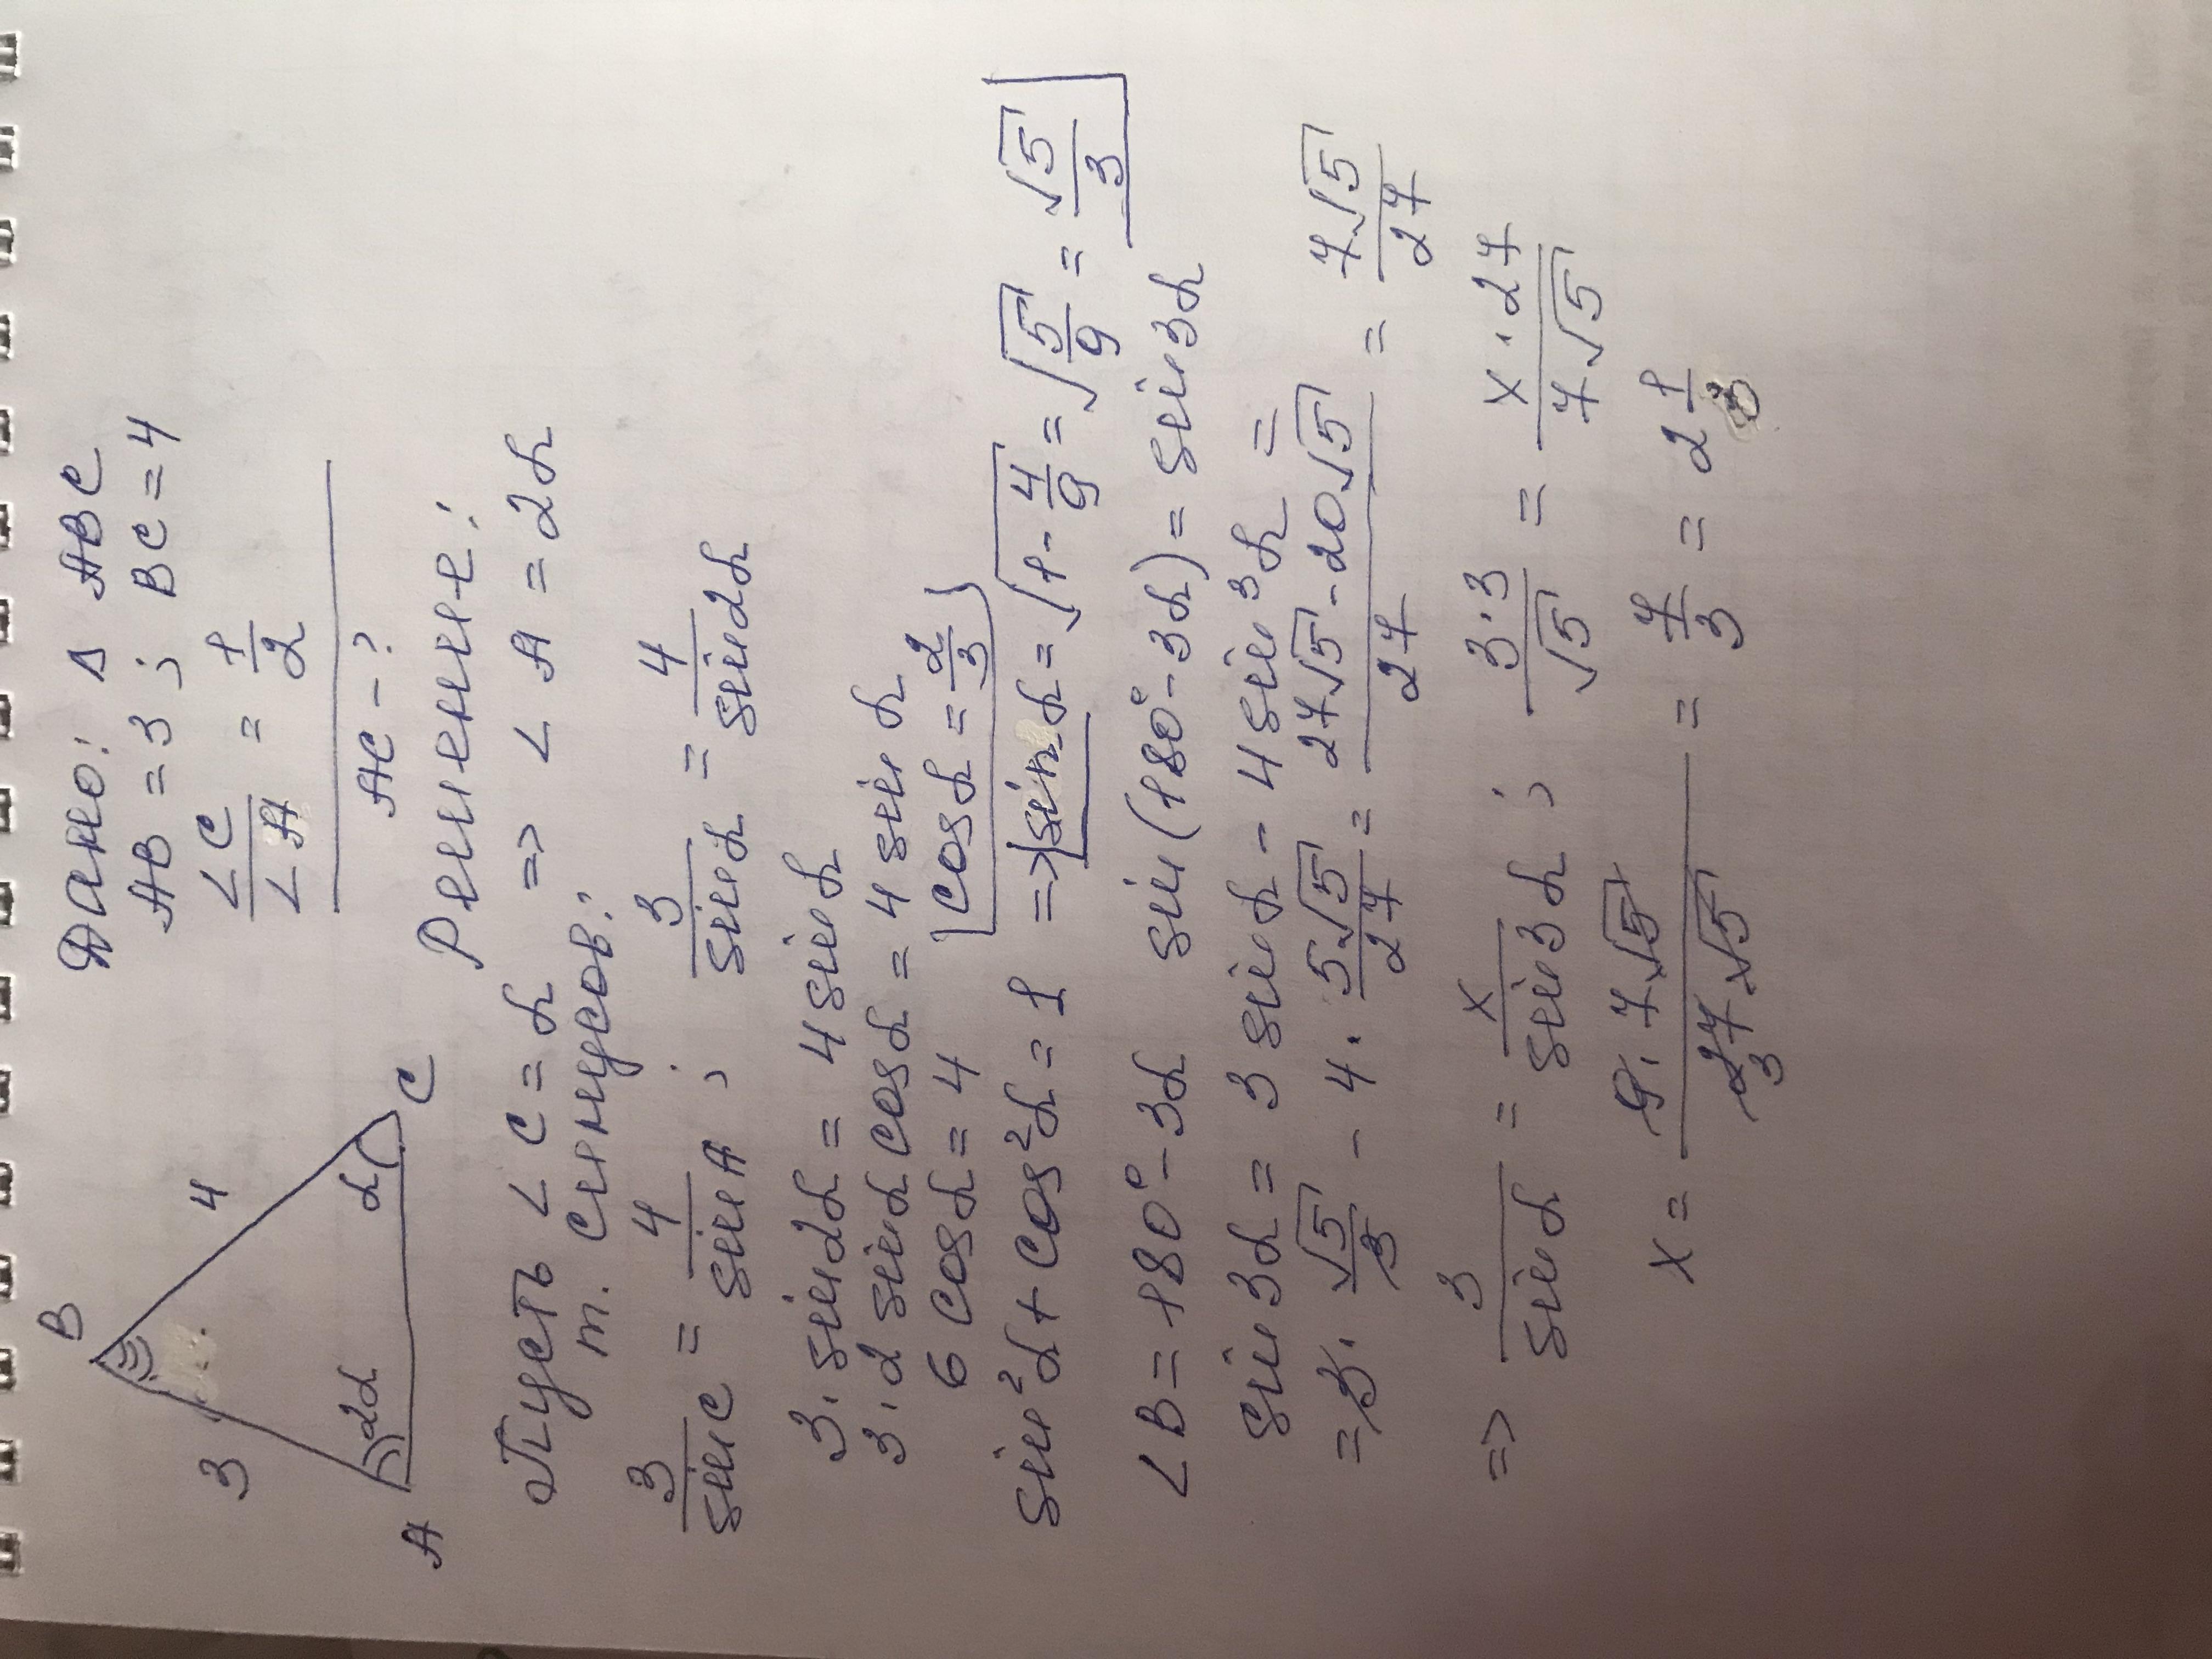 Дано: Δ ABC
AB = 3 ; BC = 4
∠C / ∠A = 1/2
AC - ?
B
3
4
2α
α
A
C
Решение:
Пусть ∠C = α => ∠A = 2α
т. синусов:
3/sin C = 4/sin A ; 3/sin α = 4/sin 2α
3 · sin 2α = 4 sin α
3 · 2 sin α cos α = 4 sin α
6 cos α = 4 cos α = 2/3
sin²α + cos²α = 1 => sin α = √(1 - 4/9) = √(5/9) = √5/3
∠B = 180° - 3α sin(180° - 3α) = sin 3α
sin 3α = 3 sin α - 4 sin³α =
= 3 · √5/3 - 4 · 5√5/27 = (27√5 - 20√5)/27 = 7√5/27
=> 3/sin α = x/sin 3α ; 3·3/√5 = x·27/7√5
x = 9·7√5/27·√5 = 7/3 = 2 1/3
3